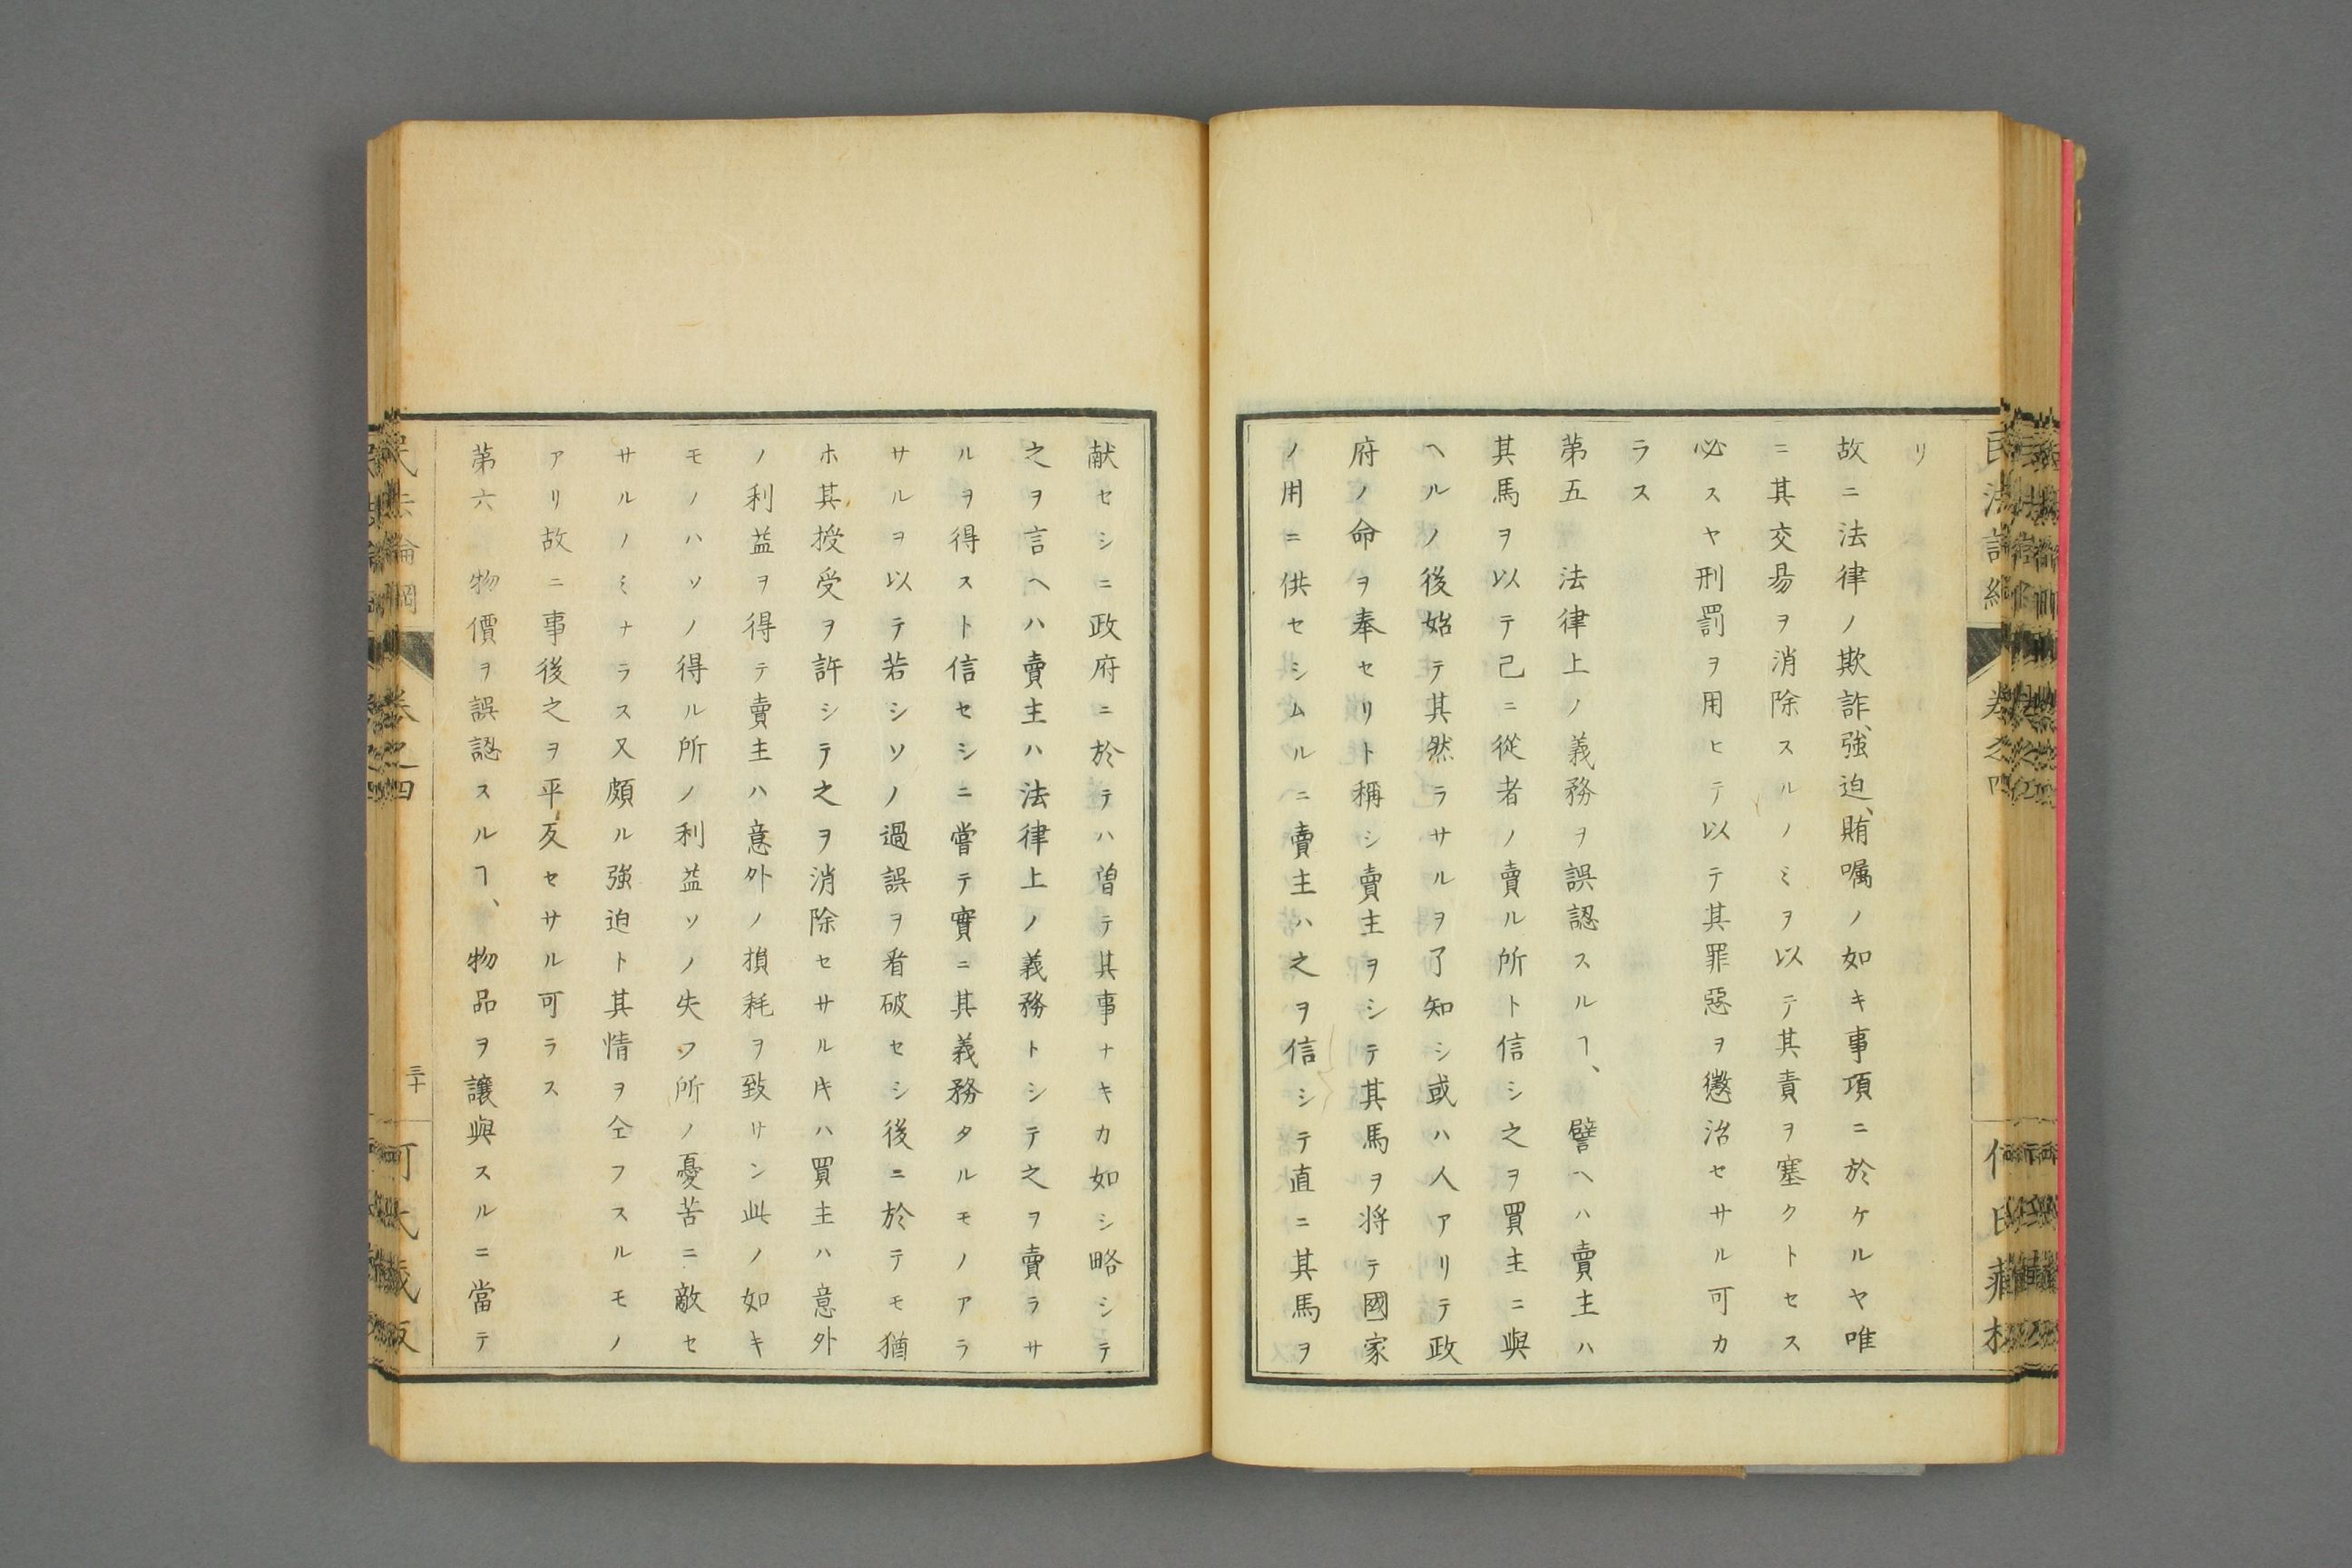 リ
故ニ法律ノ欺詐、強迫、賄嘱ノ如キ事項ニ於ケルヤ唯
ニ其交易ヲ消除スルノミヲ以テ其責ヲ塞クトセス
必スヤ刑罰ヲ用ヒテ以テ其罪惡ヲ懲治セサル可カ
ラス
第五　法律上ノ義務ヲ誤認スルヿ、　譬ヘハ賣主ハ
其馬ヲ以テ己ニ從者ノ賣ル所ト信シ之ヲ買主ニ與
ヘルノ後始テ其然ラサルヲ了知シ或ハ人アリテ政
府ノ命ヲ奉セリト稱シ賣主ヲシテ其馬ヲ将テ國家
ノ用ニ供セシムルニ賣主ハ之ヲ信シテ直ニ其馬ヲ
献セシニ政府ニ於テハ曽テ其事ナキカ如シ略シテ
之ヲ言ヘハ賣主ハ法律上ノ義務トシテ之ヲ賣ラサ
ルヲ得スト信セシニ嘗テ實ニ其義務タルモノアラ
サルヲ以テ若シソノ過誤ヲ看破セシ後ニ於テモ猶
ホ其授受ヲ許シテ之ヲ消除セサル𪜈ハ買主ハ意外
ノ利益ヲ得テ賣主ハ意外ノ損耗ヲ致サン此ノ如キ
モノハソノ得ル所ノ利益ソノ失フ所ノ憂苦ニ敵セ
サルノミナラス又頗ル強迫ト其情ヲ仝フスルモノ
アリ故ニ事後之ヲ平反セサル可ラス
第六　物價ヲ誤認スルヿ、　物品ヲ讓與スルニ當テ
民法論綱　卷之四　三十　何氏蔵版